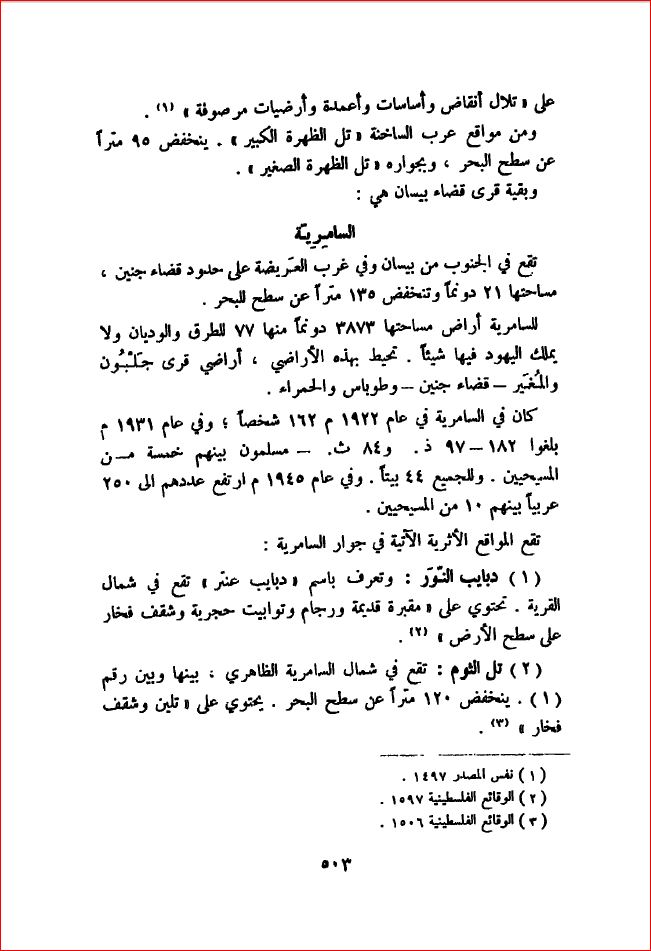 على « تلال أنقاض وأساسات وأعمدة وأرضيات مرصوفة » (١) .
ومن مواقع عرب الساخنة « تل الظهرة الكبير » . ينخفض ٩٥ متراً
عن سطح البحر ، وبجواره « تل الظهرة الصغير » .
وبقية قرى قضاء بيسان هي :
السامِريّة
تقع في الجنوب من بيسان وفي غرب العَريضة على حدود قضاء جنين ،
مساحتها ٢١ دونماً وتنخفض ١٣٥ متراً عن سطح للبحر .
للسامرية أراض مساحتها ٣٨٧٣ دونماً منها ٧٧ للطرق والوديان ولا
يملك اليهود فيها شيئاً . تحيط بهذه الأراضي ، أراضي قرى جَلْبُون
والمُغَيّر – قضاء جنين – وطوباس والحمراء .
كان في السامرية في عام ١٩٢٢ م ١٦٢ شخصاً ؛ وفي عام ١٩٣١ م
بلغوا ١٨٢ – ٩٧ ذ. و٨٤ ث. – مسلمون بينهم خمسة مـن
المسيحيين . وللجميع ٤٤ بيتاً . وفي عام ١٩٤٥ م ارتفع عددهم الى ٢٥٠
عربياً بينهم ١٠ من المسيحيين .
تقع المواقع الأثرية الآتية في جوار السامرية :
(١) دبايب النّوَر : وتعرف باسم « دبايب عنتر » تقع في شمال
القرية . تحتوي على « مقبرة قديمة ورجام وتوابيت حجرية وشقف فخار
على سطح الأرض » (٢) .
(٢) تل الثوم : تقع في شمال السامرية الظاهري ، بينها وبين رقم
(١) . ينخفض ١٢٠ متراً عن سطح البحر . يحتوي على « تلين وشقف
فخار » (٣) .
(١) نفس المصدر ١٤٩٧ .
(٢) الوقائع الفلسطينية ١٥٩٧ .
(٣) الوقائع الفلسطينية ١٥٠٦ .
٥٠٣